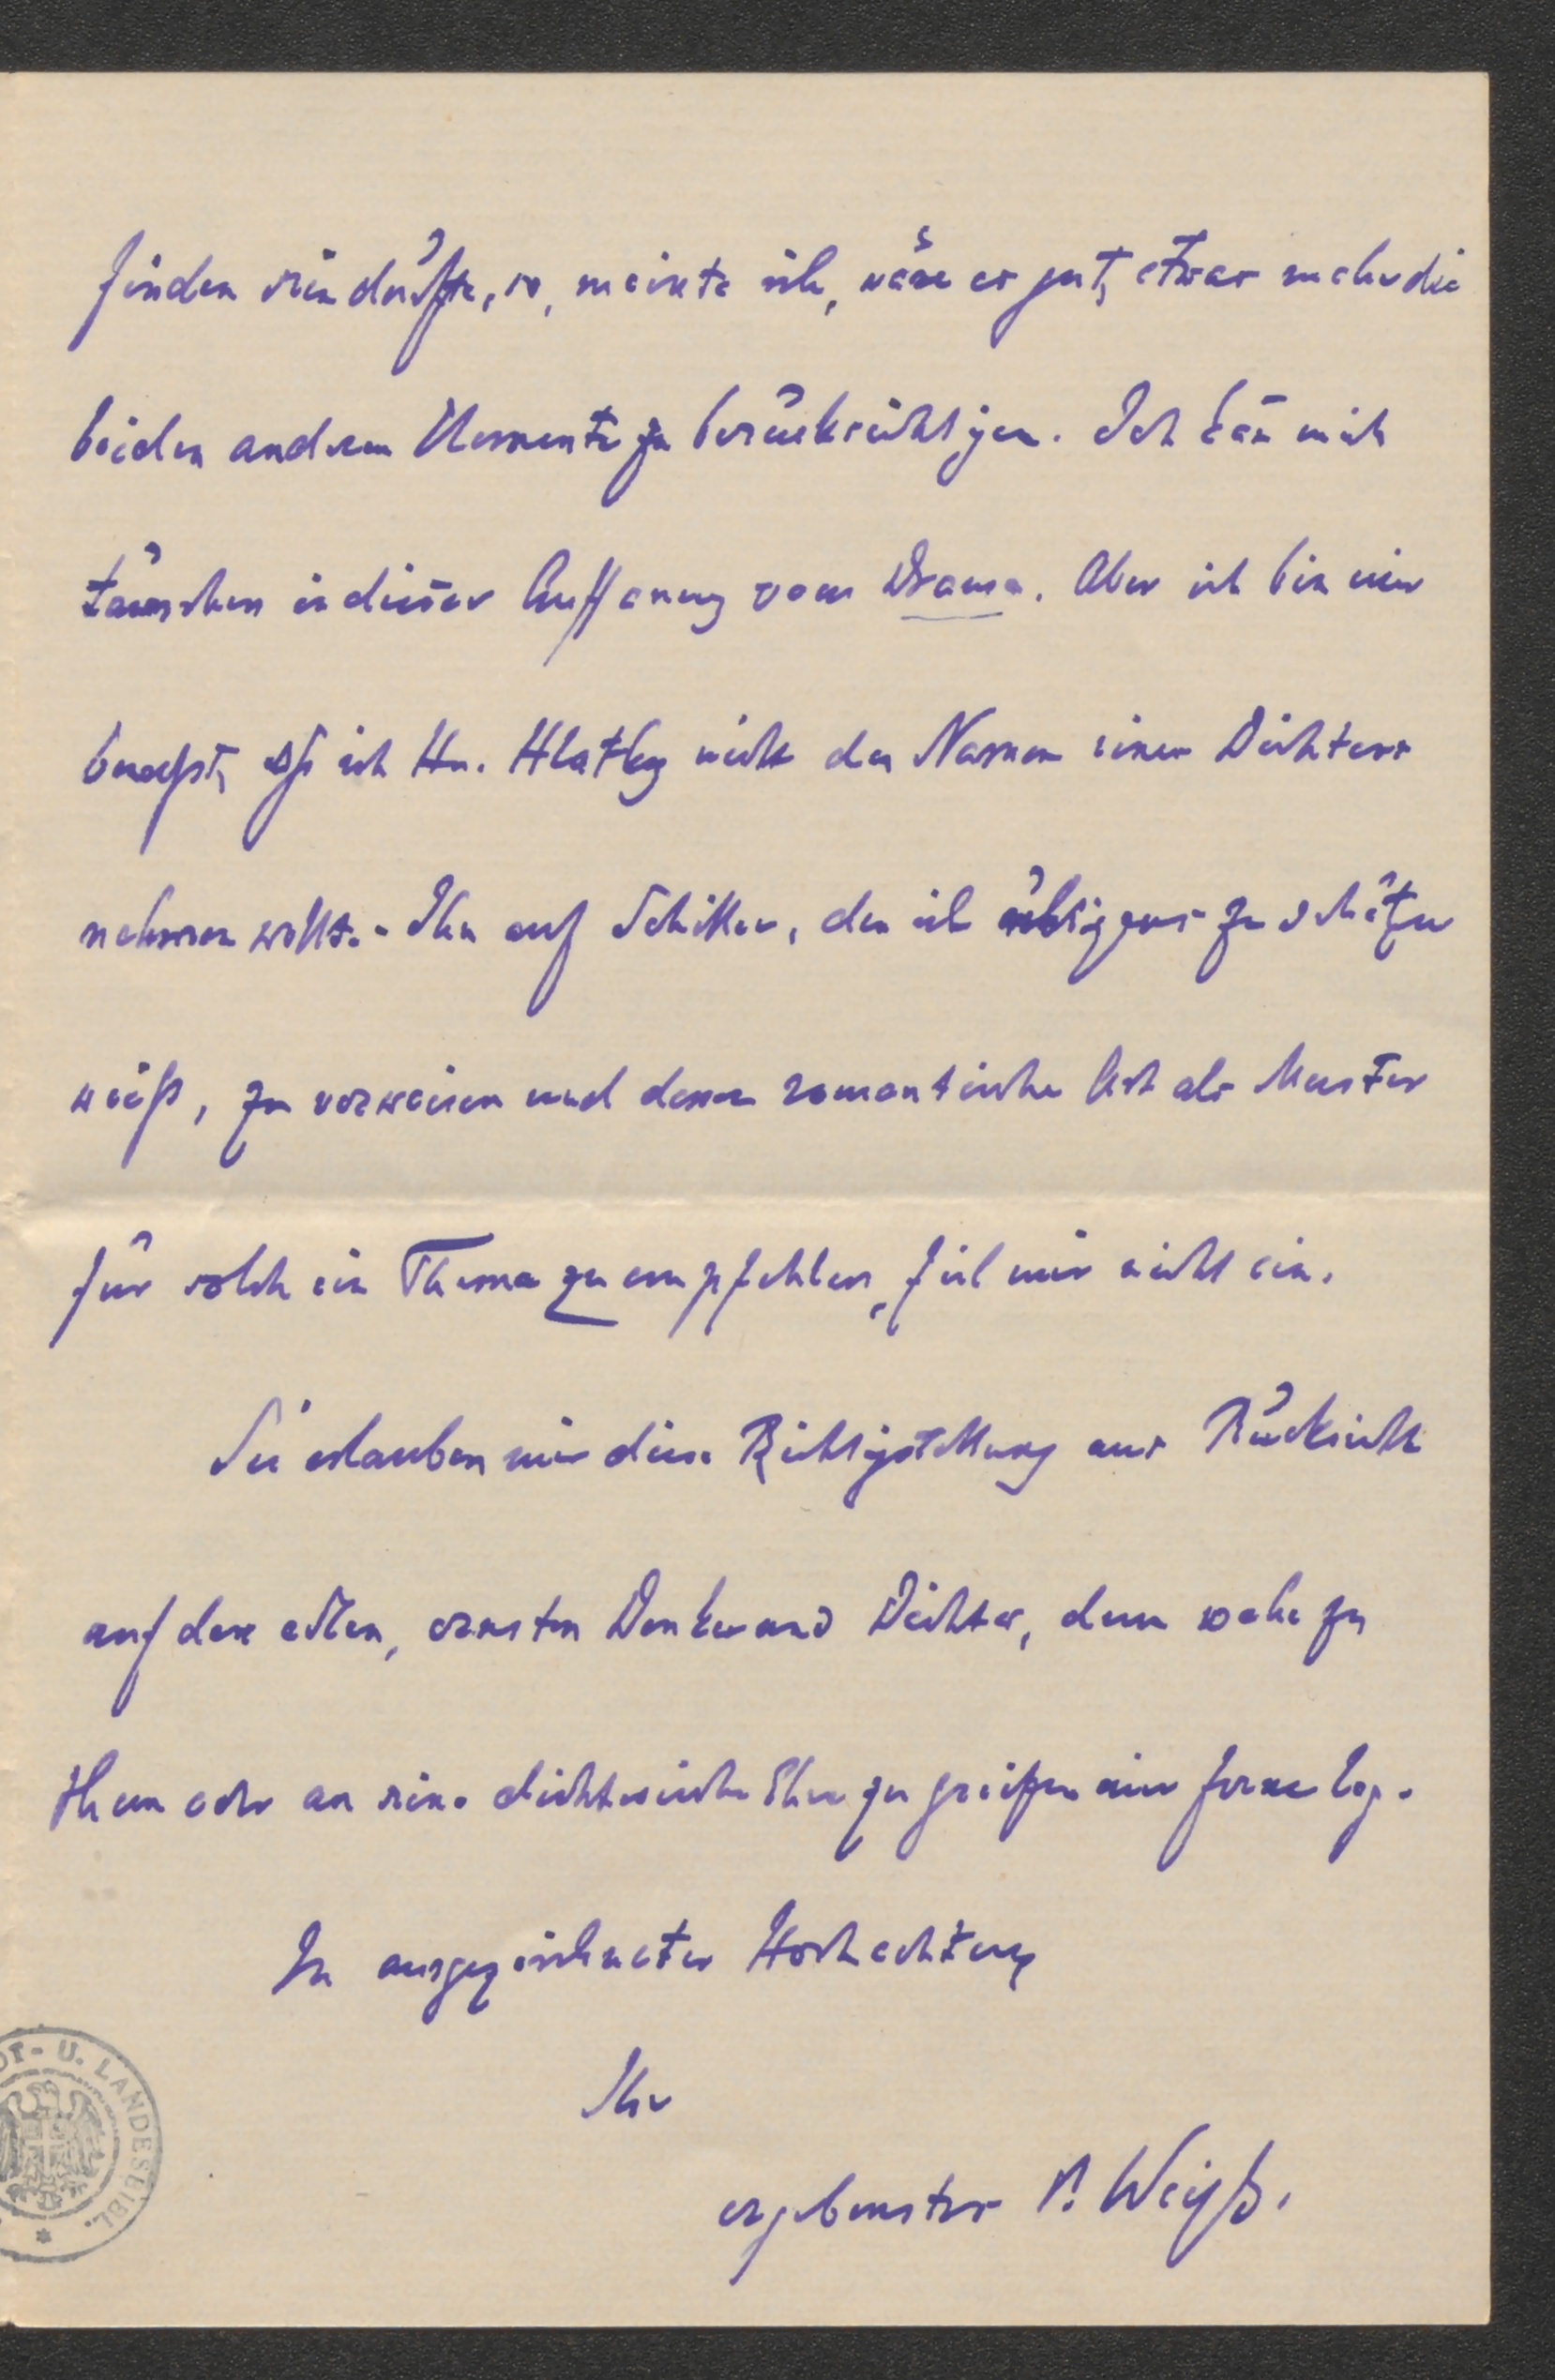 finden sein dürfte, so, meinte ich, wäre es gut, etwas mehr die
beiden anderen Elemente zu berücksichtigen. Ich kan̄ mich
täuschen in dieser Auffassung vom Drama. Aber ich bin mir
bewußt, daß ich Hn. Hlatky nicht den Namen eines Dichters
nehmen wollte. - Ihn auf Schiller, den ich übrigens zu schätzen
weiß, zu verweisen und dessen romantische Art als Muster
für solch ein Thema zu empfehlen, fiel mir nicht ein.
Sie erlauben mir diese Richtigstellung aus Rücksicht
auf den edlen, ernsten Denker und Dichter, dem wehe zu
thun oder an seine dichterische Ehre zu greifen mir ferne lag.
In ausgezeichneter Hochachtung
Ihr
ergebenster P. Weiß.
U. LANDESBIBL.